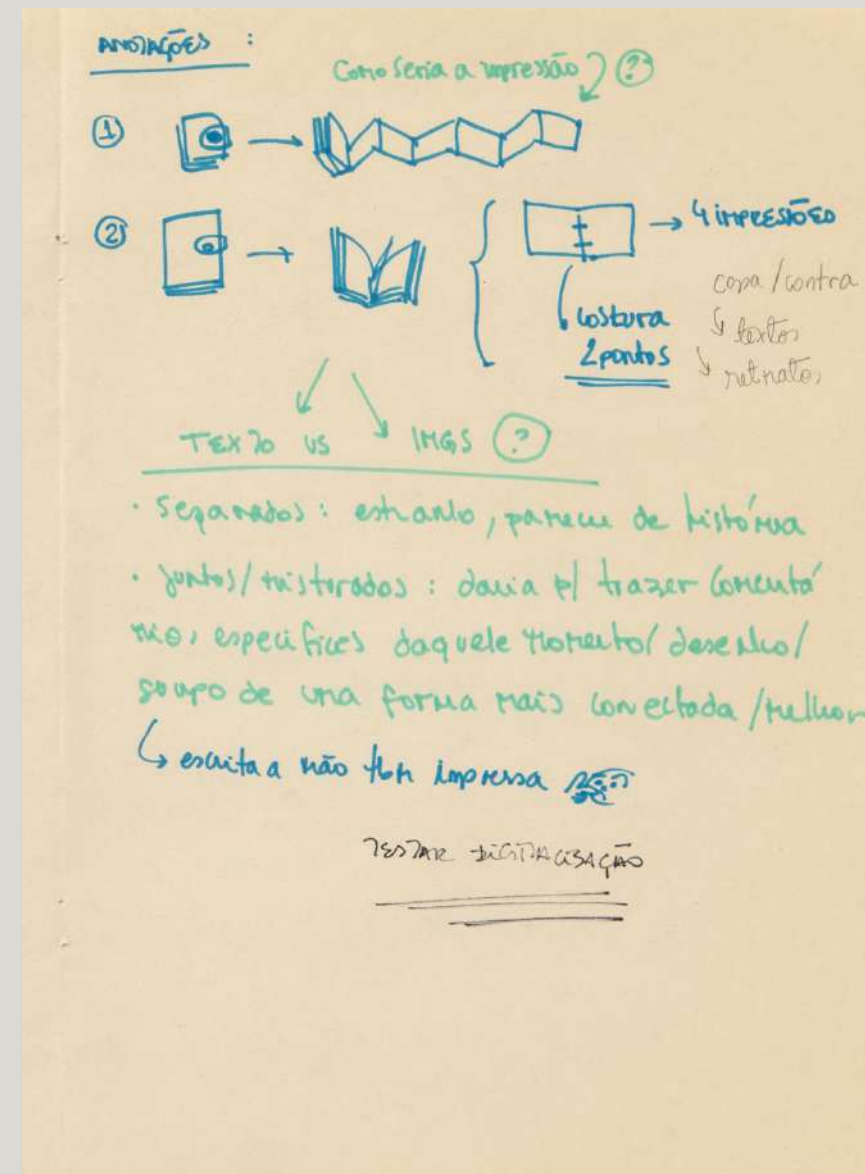 ANOTAÇÕES :
Como seria a impressão ?
1
2
→ 4 IMPRESSÕES
capa/contra
↳ textos
↳ retratos
costura
2 pontos
TEXTO VS IMGS ?
· Separados : estranho, parece de história
· Juntos/misturados : daria p/ trazer comentá
rios específicos daquele momento/desenho/
grupo de uma forma mais conectada/melhor
↳ escrita a mão tbm impressa
TESTAR DIGITALIZAÇÃO